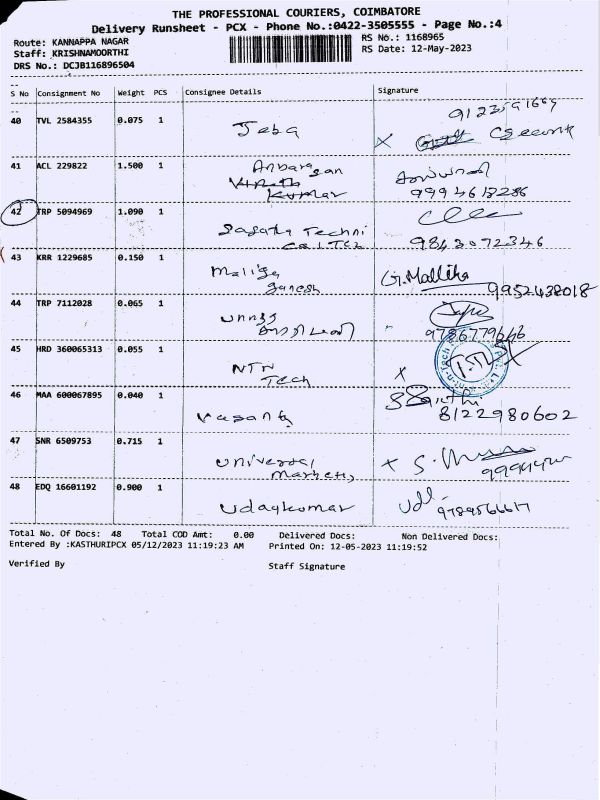 THE PROFESSIONAL COURIERS, COIMBATORE
Delivery Runsheet - PCX - Phone No.:0422-3505555 - Page No.:4
Route: KANNAPPA NAGAR
Staff: KRISHNAMOORTHI
DRS No.: DCJB116896504
RS No.: 1168965
RS Date: 12-May-2023
S No Consignment No Weight PCS Consignee Details Signature
40 TVL 2584355 0.075 1 Jeba
41 ACL 229822 1.500 1 Anbarasan
Kumar
9994613286
42 TRP 5094969 1.090 1
9843072346
43 KRR 1229685 0.150 1 Malliga G.Mallika
ganesh 9952438018
44 TRP 7112028 0.065 1
9786779646
45 HRD 360065313 0.055 1 NTN
Tech X
46 MAA 600067895 0.040 1 Vasanth
8122980602
47 SNR 6509753 0.715 1 Universal X
48 EDQ 16601192 0.900 1 Udaykumar
Total No. Of Docs: 48 Total COD Amt: 0.00 Delivered Docs: Non Delivered Docs:
Entered By :KASTHURIPCX 05/12/2023 11:19:23 AM Printed On: 12-05-2023 11:19:52
Verified By Staff Signature